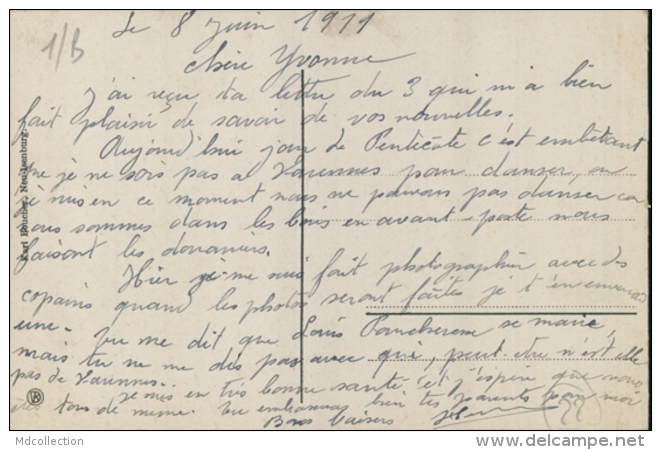 1/B
Le 8 juin 1911
Chère Yvonne
J'ai reçu ta lettre du 3 qui m'a bien
fait plaisir de savoir de vos nouvelles.
Aujourd'hui jour de Pentecôte c'est embêtant
que je ne sois pas a Varennes pour danser, ou
je suis en ce moment nous ne pouvons pas danser car
nous sommes dans les bois en avant-poste nous
faisons les douaniers.
Hier je me suis fait photographier avec des
copains quand les photos seront faites je t'en enverrai
une. Tu me dit que Louis se marie,
mais tu ne me dis pas avec qui, peut être n'est elle
pas de Varennes.
je suis en très bonne santé et j'espère que vous
êtes tous de même. Tu embrasseras bien tes parents pour moi
Bons baisers
Karl Neu-Isenburg.
Mdcollection
http://www.delcampe.net